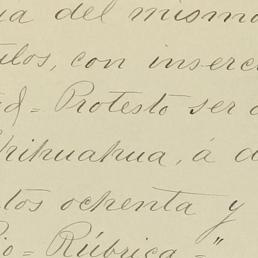 del mismo
con inserc
= Protesto ser
Chihuahua, á d
tos ochenta y
= Rúbrica = "